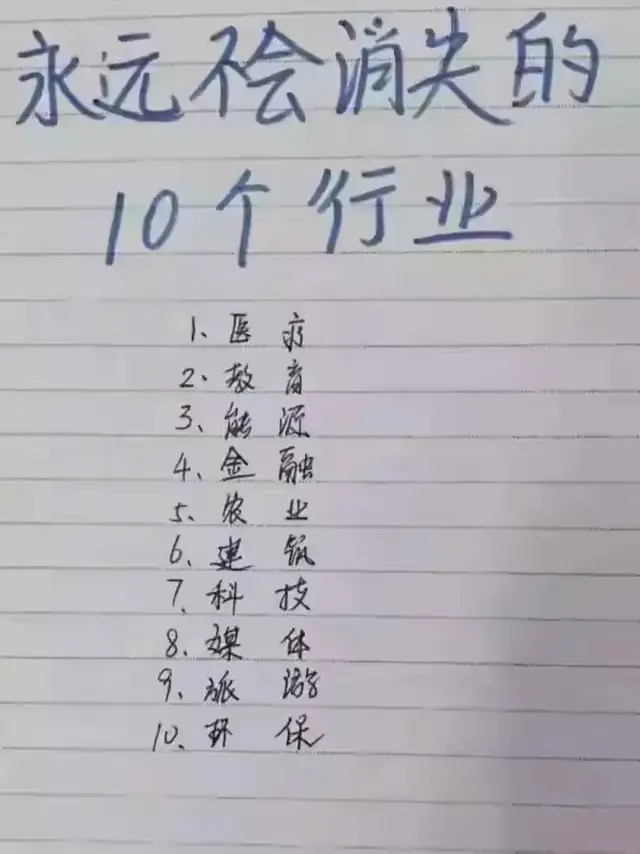 永远不会消失的
10个行业
1、医疗
2、教育
3、能源
4、金融
5、农业
6、建筑
7、科技
8、媒体
9、旅游
10、环保